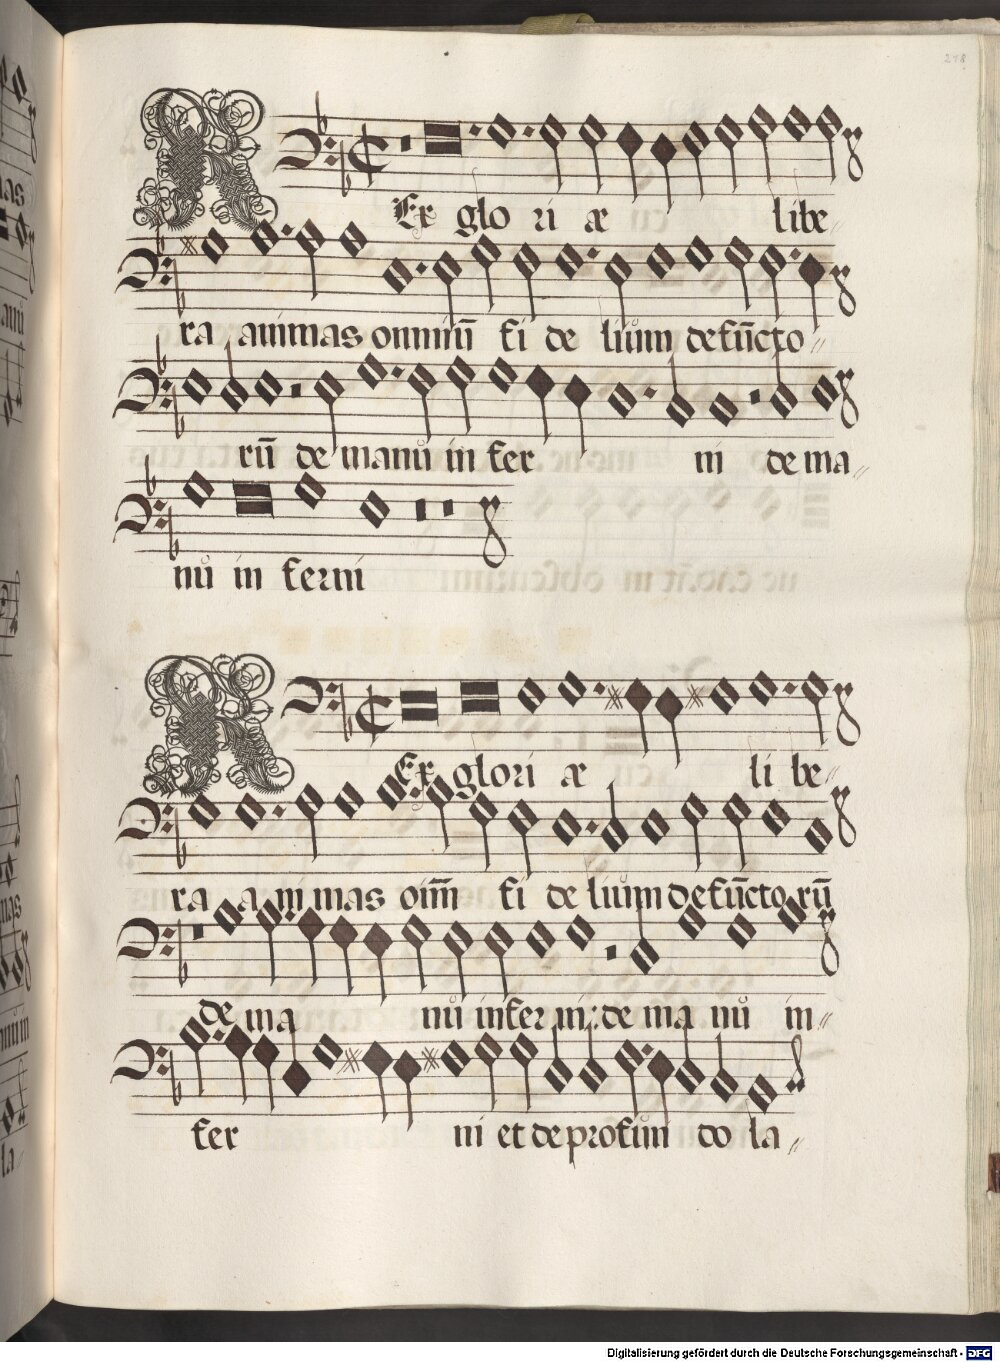 218
REx glo ri æ libe
ra animas omniū fi de lium defūcto
rū de manu in fer ni de ma
nu in ferni
REx glori æ li be
ra a ni mas oīm fi de lium defūcto rū
de ma nu infer ni: de ma nu in
fer ni et deprofun do la
Digitalisierung gefördert durch die Deutsche Forschungsgemeinschaft - DFG